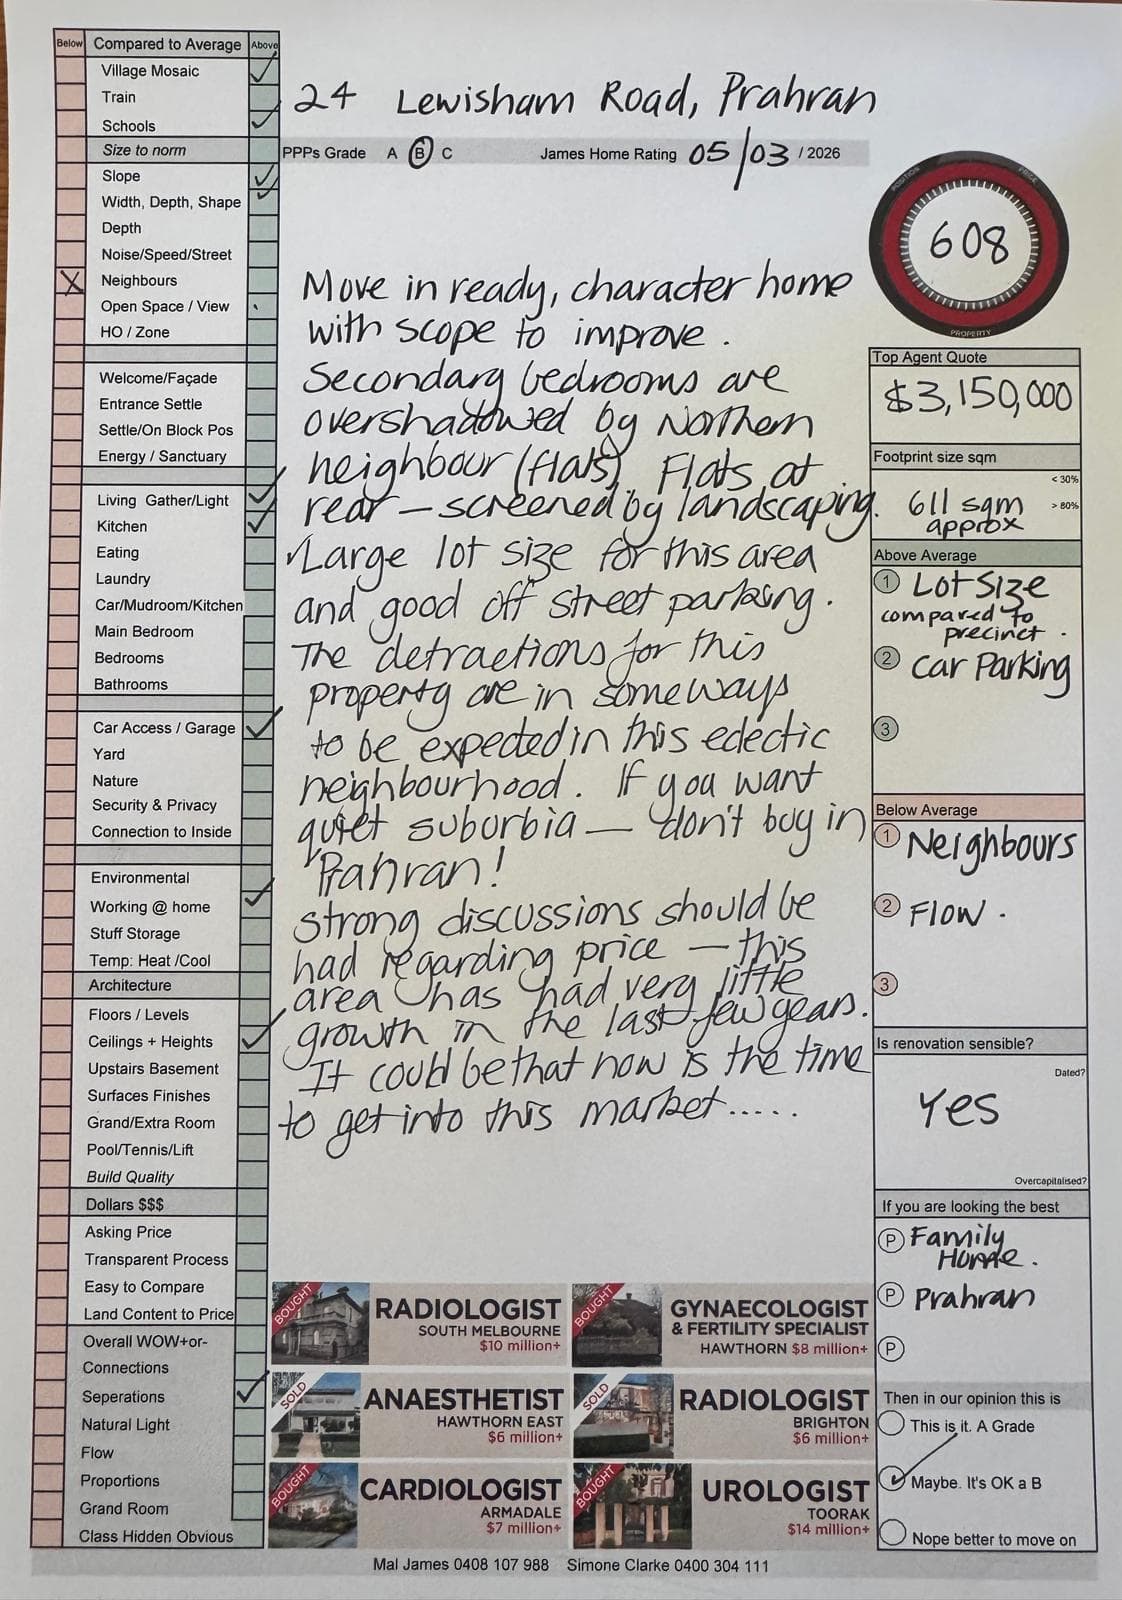 Below Compared to Average Above
Village Mosaic
Train
Schools
Size to norm
Slope
Width, Depth, Shape
Depth
Noise/Speed/Street
Neighbours
Open Space / View
HO / Zone
Welcome/Façade
Entrance Settle
Settle/On Block Pos
Energy / Sanctuary
Living Gather/Light
Kitchen
Eating
Laundry
Car/Mudroom/Kitchen
Main Bedroom
Bedrooms
Bathrooms
Car Access / Garage
Yard
Nature
Security & Privacy
Connection to Inside
Environmental
Working @ home
Stuff Storage
Temp: Heat /Cool
Architecture
Floors / Levels
Ceilings + Heights
Upstairs Basement
Surfaces Finishes
Grand/Extra Room
Pool/Tennis/Lift
Build Quality
Dollars $$$
Asking Price
Transparent Process
Easy to Compare
Land Content to Price
Overall WOW+or-
Connections
Seperations
Natural Light
Flow
Proportions
Grand Room
Class Hidden Obvious
24 Lewisham Road, Prahran
PPPs Grade A B C James Home Rating 05/03 / 2026
Move in ready, character home
with scope to improve.
Secondary bedrooms are
overshadowed by Northern
neighbour (flats). Flats at
rear – screened by landscaping.
Large lot size for this area
and good off street parking.
The detractions for this
property are in some ways
to be expected in this eclectic
neighbourhood. If you want
quiet suburbia – don't buy in
Prahran!
Strong discussions should be
had regarding price – this
area has had very little
growth in the last few years.
It could be that now is the time
to get into this market.....
BOUGHT
RADIOLOGIST
SOUTH MELBOURNE
$10 million+
BOUGHT
GYNAECOLOGIST
& FERTILITY SPECIALIST
HAWTHORN $8 million+
SOLD
ANAESTHETIST
HAWTHORN EAST
$6 million+
SOLD
RADIOLOGIST
BRIGHTON
$6 million+
BOUGHT
CARDIOLOGIST
ARMADALE
$7 million+
BOUGHT
UROLOGIST
TOORAK
$14 million+
POSITION
PRICE
608
PROPERTY
Top Agent Quote
$3,150,000
Footprint size sqm
< 30%
611 sqm
> 80%
approx
Above Average
1 Lot Size
compared to
precinct.
2 Car Parking
3
Below Average
1 Neighbours
2 Flow.
3
Is renovation sensible?
Dated?
Yes
Overcapitalised?
If you are looking the best
P Family
Home.
P Prahran
P
Then in our opinion this is
This is it. A Grade
Maybe. It's OK a B
Nope better to move on
Mal James 0408 107 988 Simone Clarke 0400 304 111